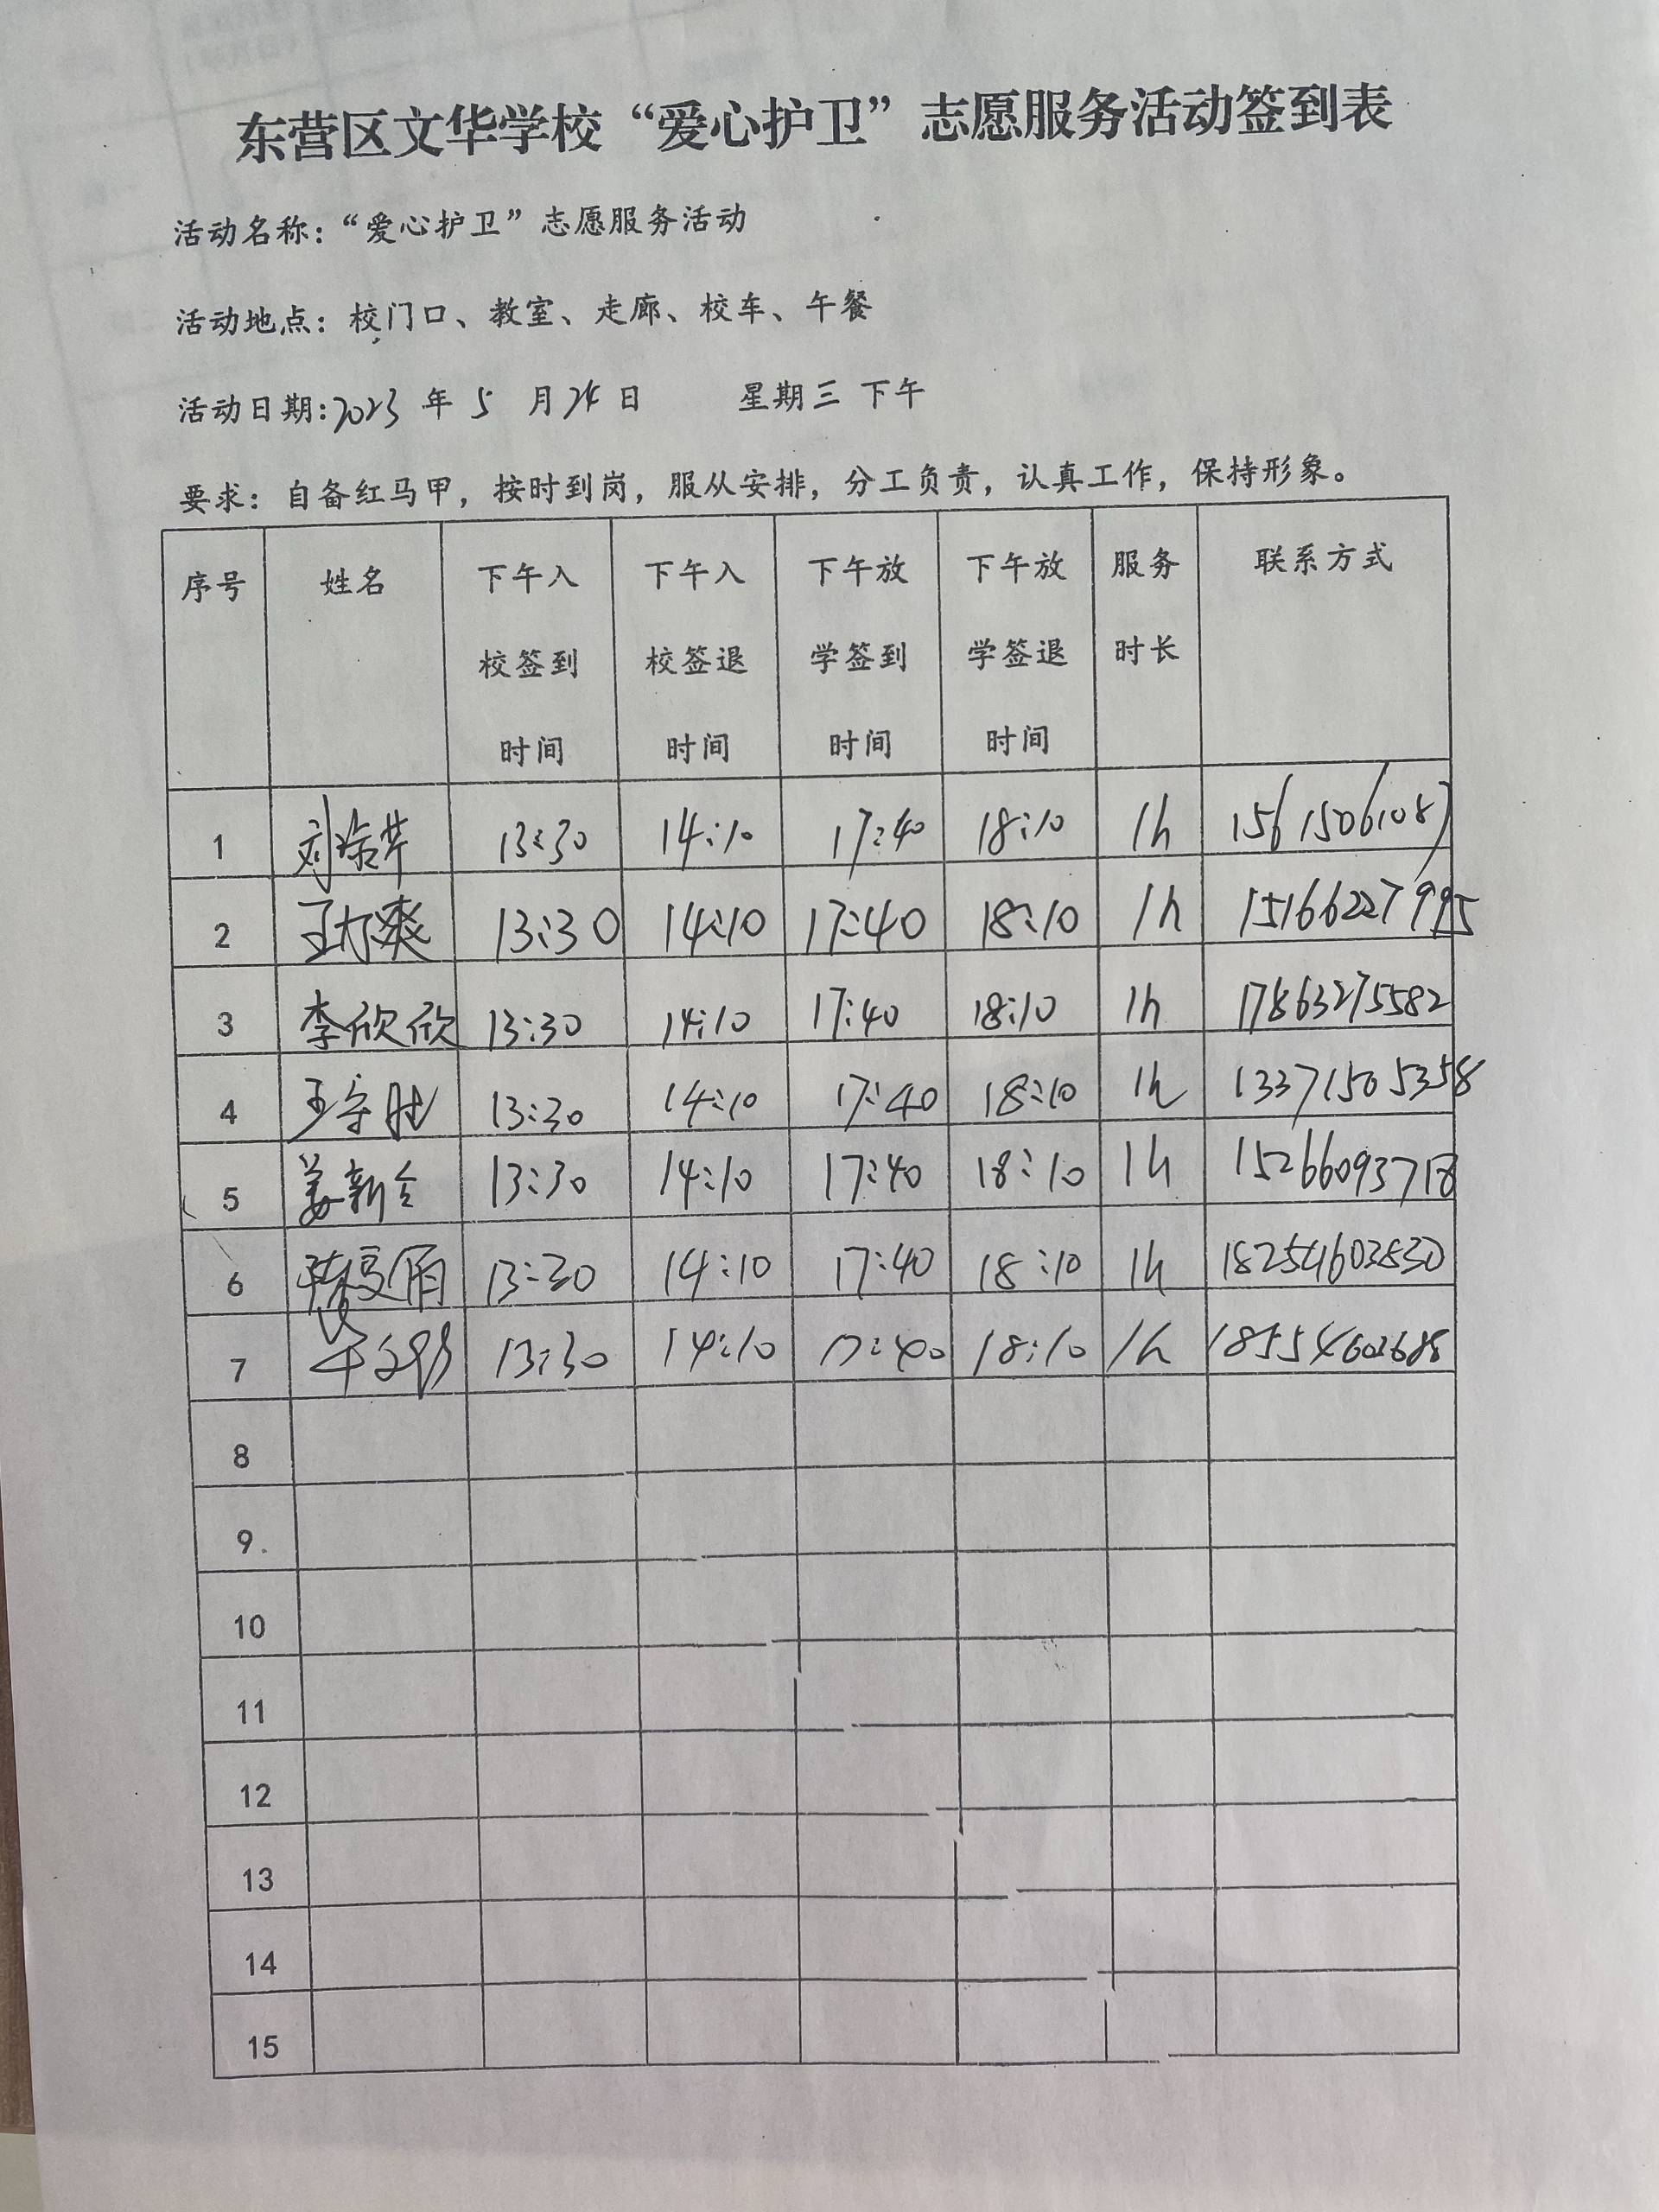 东营区文华学校“爱心护卫”志愿服务活动签到表
活动名称：“爱心护卫”志愿服务活动
活动地点：校门口、教室、走廊、校车、午餐
活动日期:2023 年 5 月 24 日 星期三 下午
要求：自备红马甲，按时到岗，服从安排，分工负责，认真工作，保持形象。
序号 姓名 下午入校签到时间 下午入校签退时间 下午放学签到时间 下午放学签退时间 服务时长 联系方式
1 13:30 14:10 17:40 18:10 1h 15615061087
2 13:30 14:10 17:40 18:10 1h 15166227995
3 李欣欣 13:30 14:10 17:40 18:10 1h 17863275582
4 13:30 14:10 17:40 18:10 1h 13371505358
5 13:30 14:10 17:40 18:10 1h 15266093718
6 13:30 14:10 17:40 18:10 1h 18254603830
7 13:30 14:10 17:40 18:10 1h
8
9
10
11
12
13
14
15